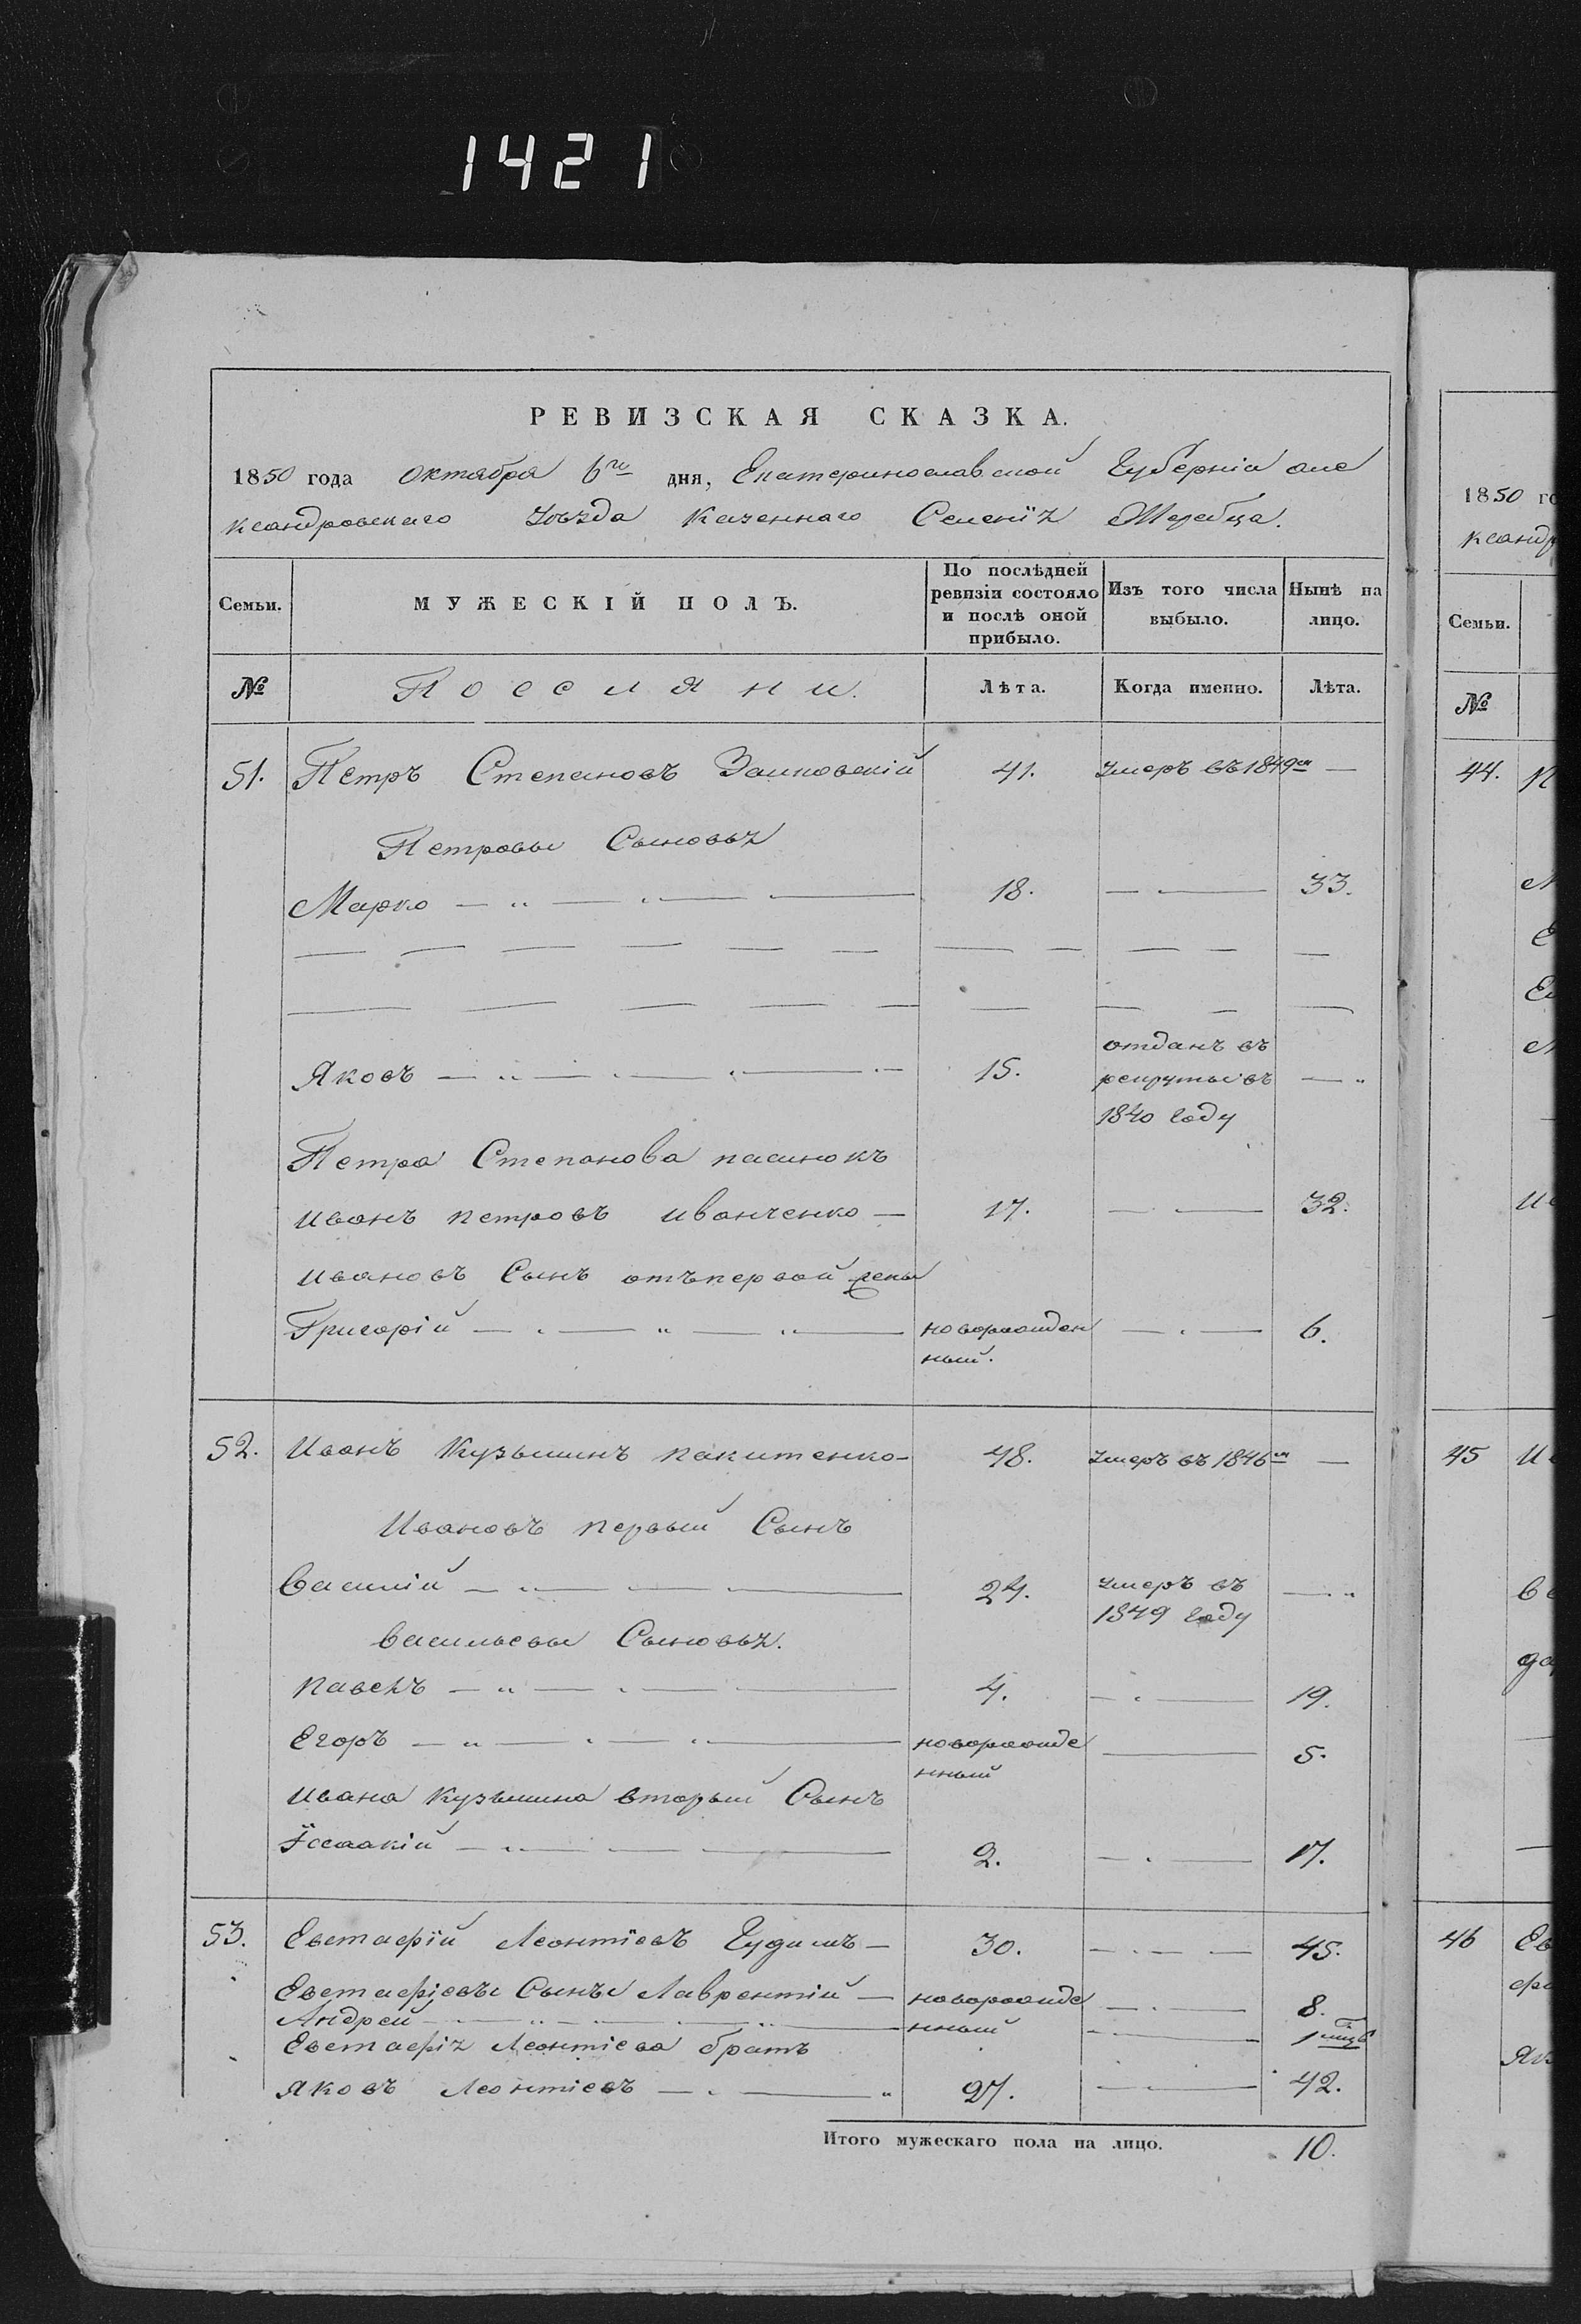 1421
РЕВИЗСКАЯ СКАЗКА.
1850 года октября 6го дня, Екатеринославской Губернiи але
ксандровскаго Уѣзда казеннаго Селенiя Жеребца.
Семьи.
МУЖЕСКІЙ ПОЛЪ.
По послѣдней ревизіи состояло и послѣ оной прибыло.
Изъ того числа выбыло.
Нынѣ на лицо.
№
Поселяни.
Лѣта.
Когда именно.
Лѣта.
51. Петръ Степановъ 41. умеръ въ 1849м —
Петровы Сыновья
Марко 18. — 33.
Яковъ 15. отданъ въ рекруты въ 1840 году —
Петра Степанова пасынокъ
иванъ петровъ иванченко — 17. — 32.
ивановъ Сынъ отъ первой жены
Григорій новорожденный. — 6.
52. Иванъ Кузьминъ никитенко - 48. умеръ въ 1846м —
Ивановъ первый Сынъ
Василій 24. умеръ въ 1849 году —
васильевы Сыновья.
павелъ 4. — 19.
Егоръ новорожденный — 5.
ивана кузьмина вторый Сынъ
Їссаакій 2. — 17.
53. Евстафїй Леонтїевъ Гудимъ — 30. — 45.
Евстафіевы Сыны Лаврентій — новорожде — 8.
Андрей нный — 1
Евстафія Леонтіева братъ
яковъ Леонтіевъ 27. — 42.
Итого мужескаго пола на лицо. 10.
1850
ксандр
Семьи.
№
44.
45
46